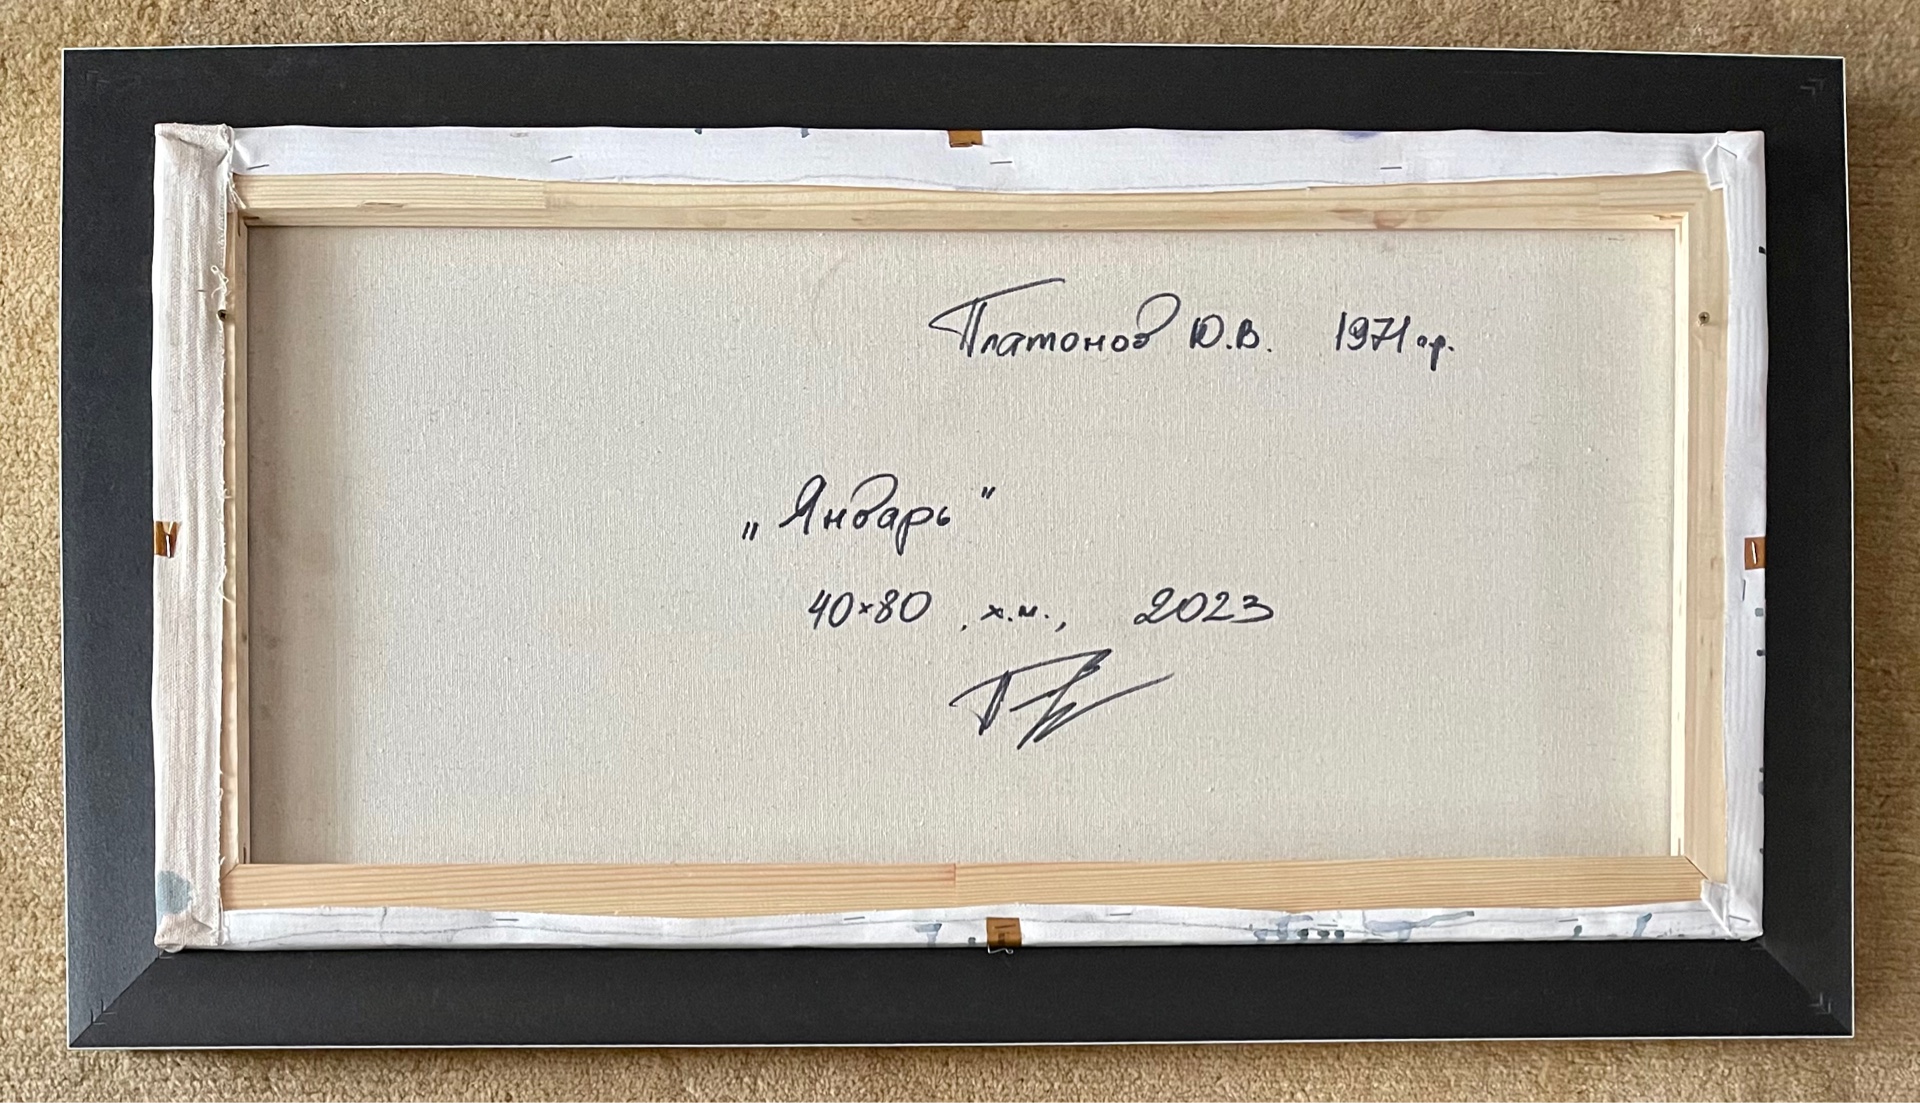 Платонов Ю.В. 1971 г.р.
„Январь"
40×80, х.м., 2023